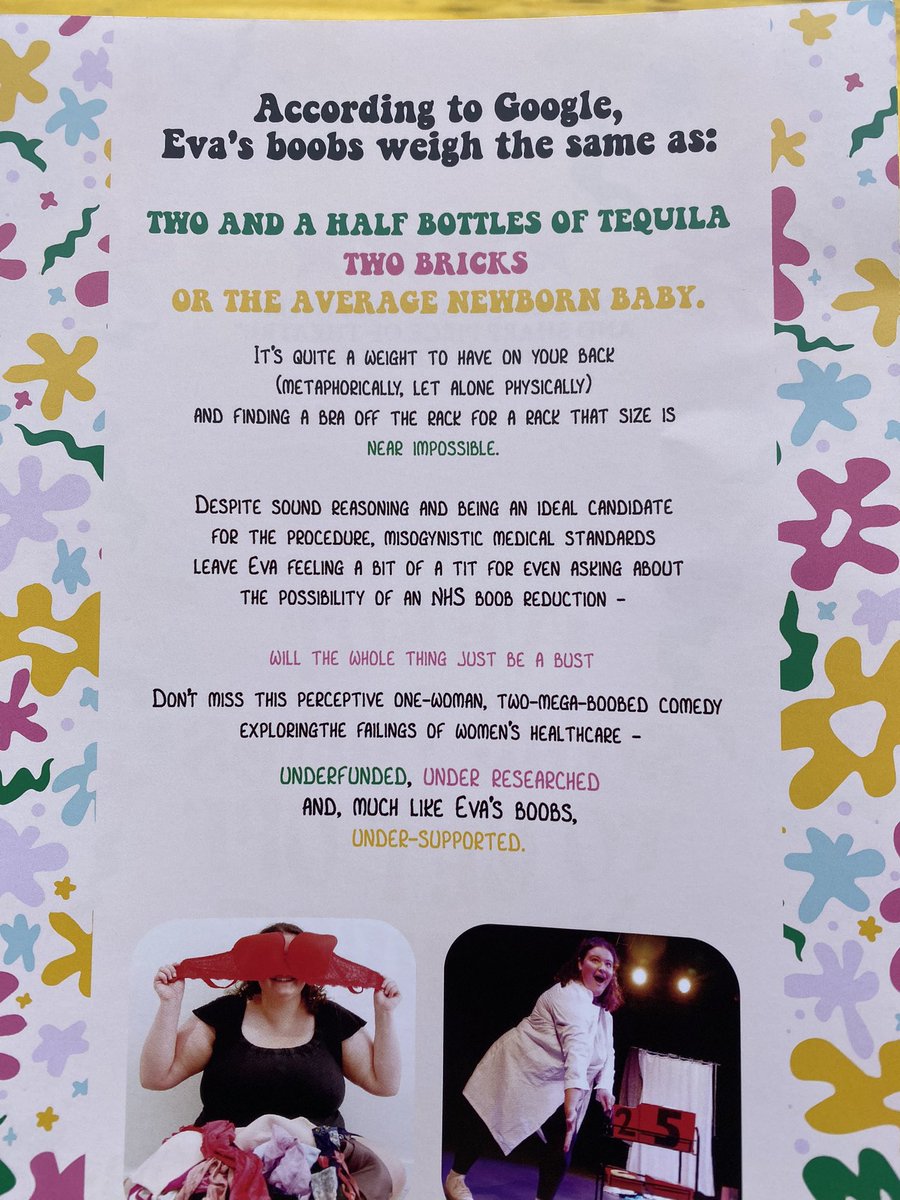 According to Google,
Eva's boobs weigh the same as:
TWO AND A HALF BOTTLES OF TEQUILA
TWO BRICKS
OR THE AVERAGE NEWBORN BABY.
IT'S QUITE A WEIGHT TO HAVE ON YOUR BACK
(METAPHORICALLY, LET ALONE PHYSICALLY)
AND FINDING A BRA OFF THE RACK FOR A RACK THAT SIZE IS
NEAR IMPOSSIBLE.
DESPITE SOUND REASONING AND BEING AN IDEAL CANDIDATE
FOR THE PROCEDURE, MISOGYNISTIC MEDICAL STANDARDS
LEAVE EVA FEELING A BIT OF A TIT FOR EVEN ASKING ABOUT
THE POSSIBILITY OF AN NHS BOOB REDUCTION -
WILL THE WHOLE THING JUST BE A BUST
DON'T MISS THIS PERCEPTIVE ONE-WOMAN, TWO-MEGA-BOOBED COMEDY
EXPLORINGTHE FAILINGS OF WOMEN'S HEALTHCARE -
UNDERFUNDED, UNDER RESEARCHED
AND, MUCH LIKE EVA'S BOOBS,
UNDER-SUPPORTED.
25